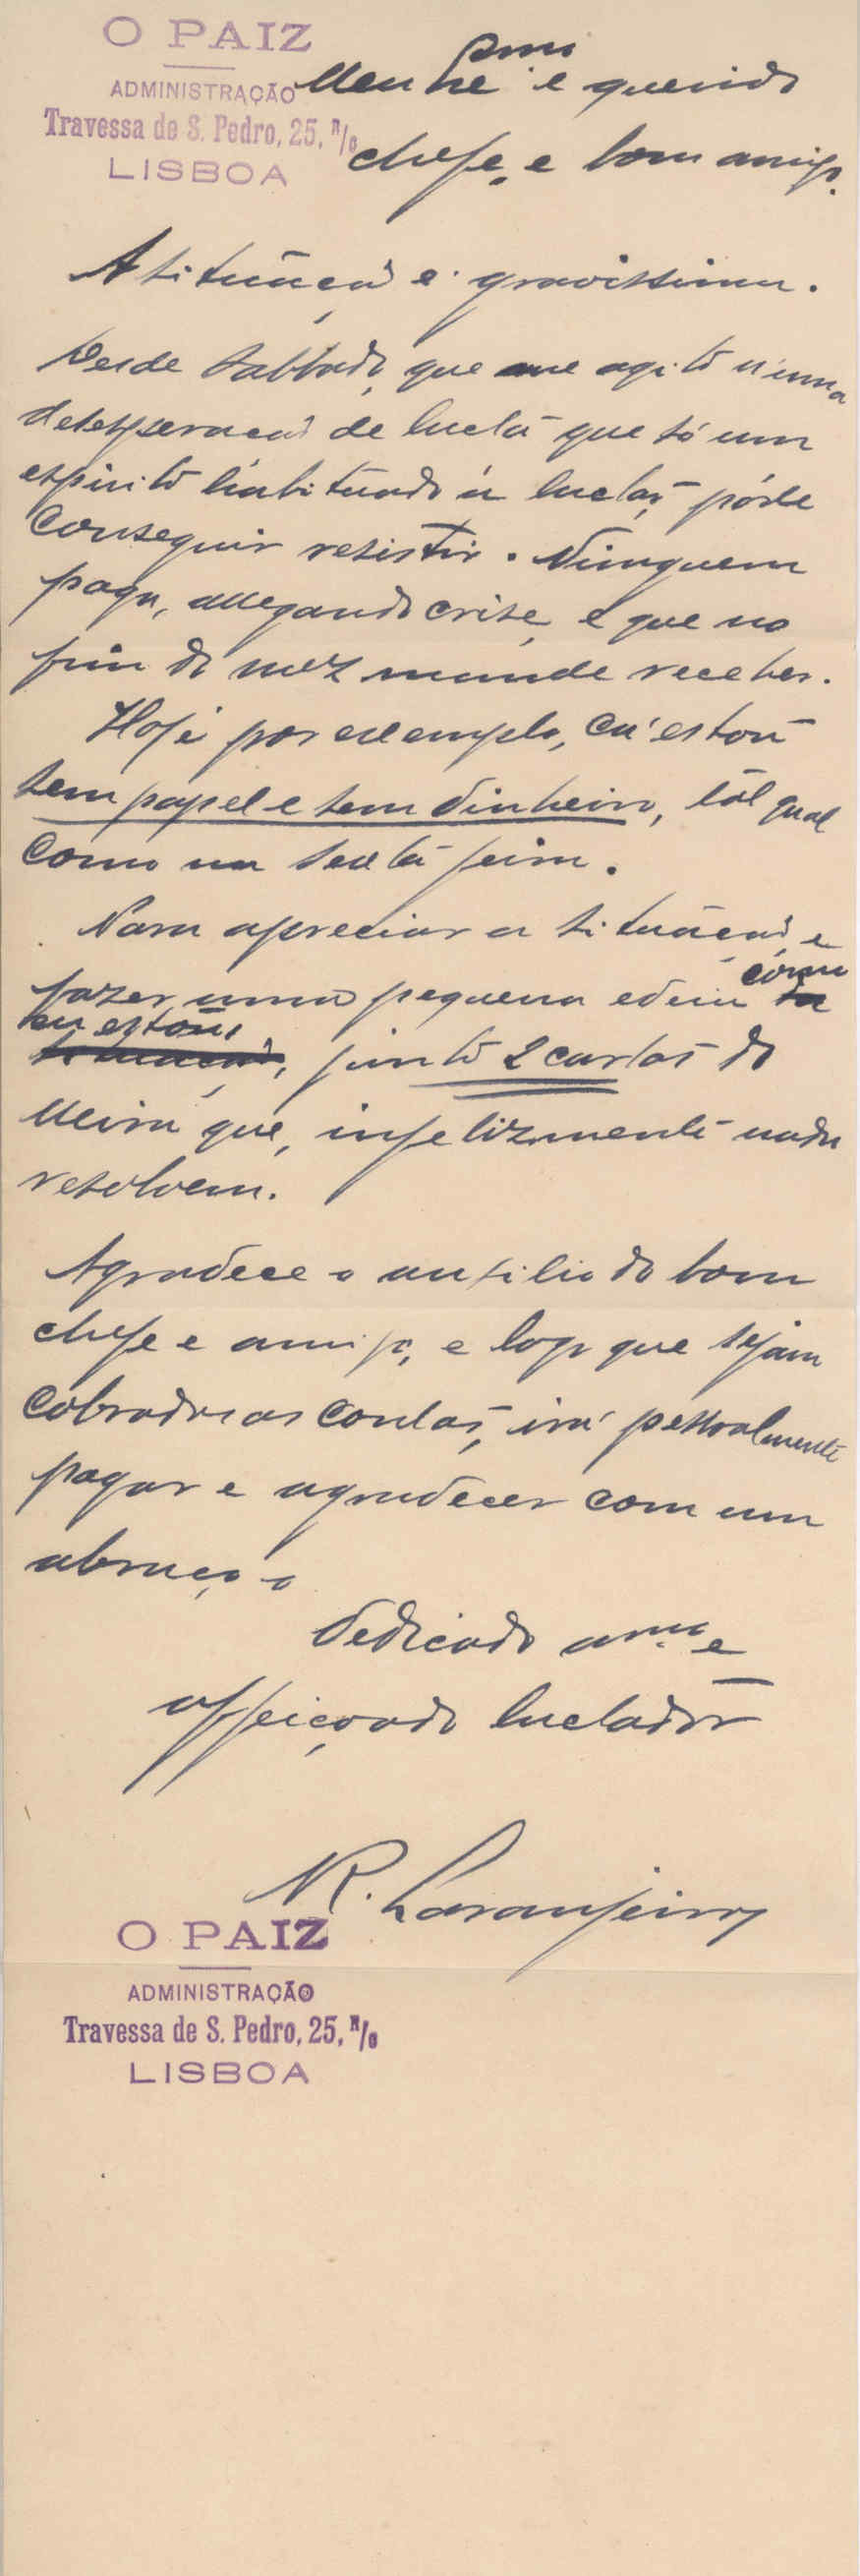 O PAIZ
ADMINISTRAÇÃO
Travessa de S. Pedro, 25, R/C
LISBOA
Meu e querido
chefe, e bom amigo.
A situação é gravissima.
Desde sabbado, que me agito n'uma
desesperação de lucta que só um
espirito habituado á luctas, póde
conseguir resistir. Ninguem
paga, allegando crise, e que no
fim do mez mande receber.
Hoje por exemplo, cá estou
sem papel e sem dinheiro, tal qual
como na sexta feira.
Para apreciar a situação, e
fazer uma pequena edeia como
eu estou, junto 2 cartas do
Meira que, infelizmente nada
resolvem.
Agradece o auxilio do bom
chefe e amigo, e logo que sejam
cobradas as contas, irá pessoalmente
pagar e agradecer com um
abraço o
Dedicado amo e
affeiçoado luctador
R. Laranjeira
O PAIZ
ADMINISTRAÇÃO
Travessa de S. Pedro, 25, R/C
LISBOA